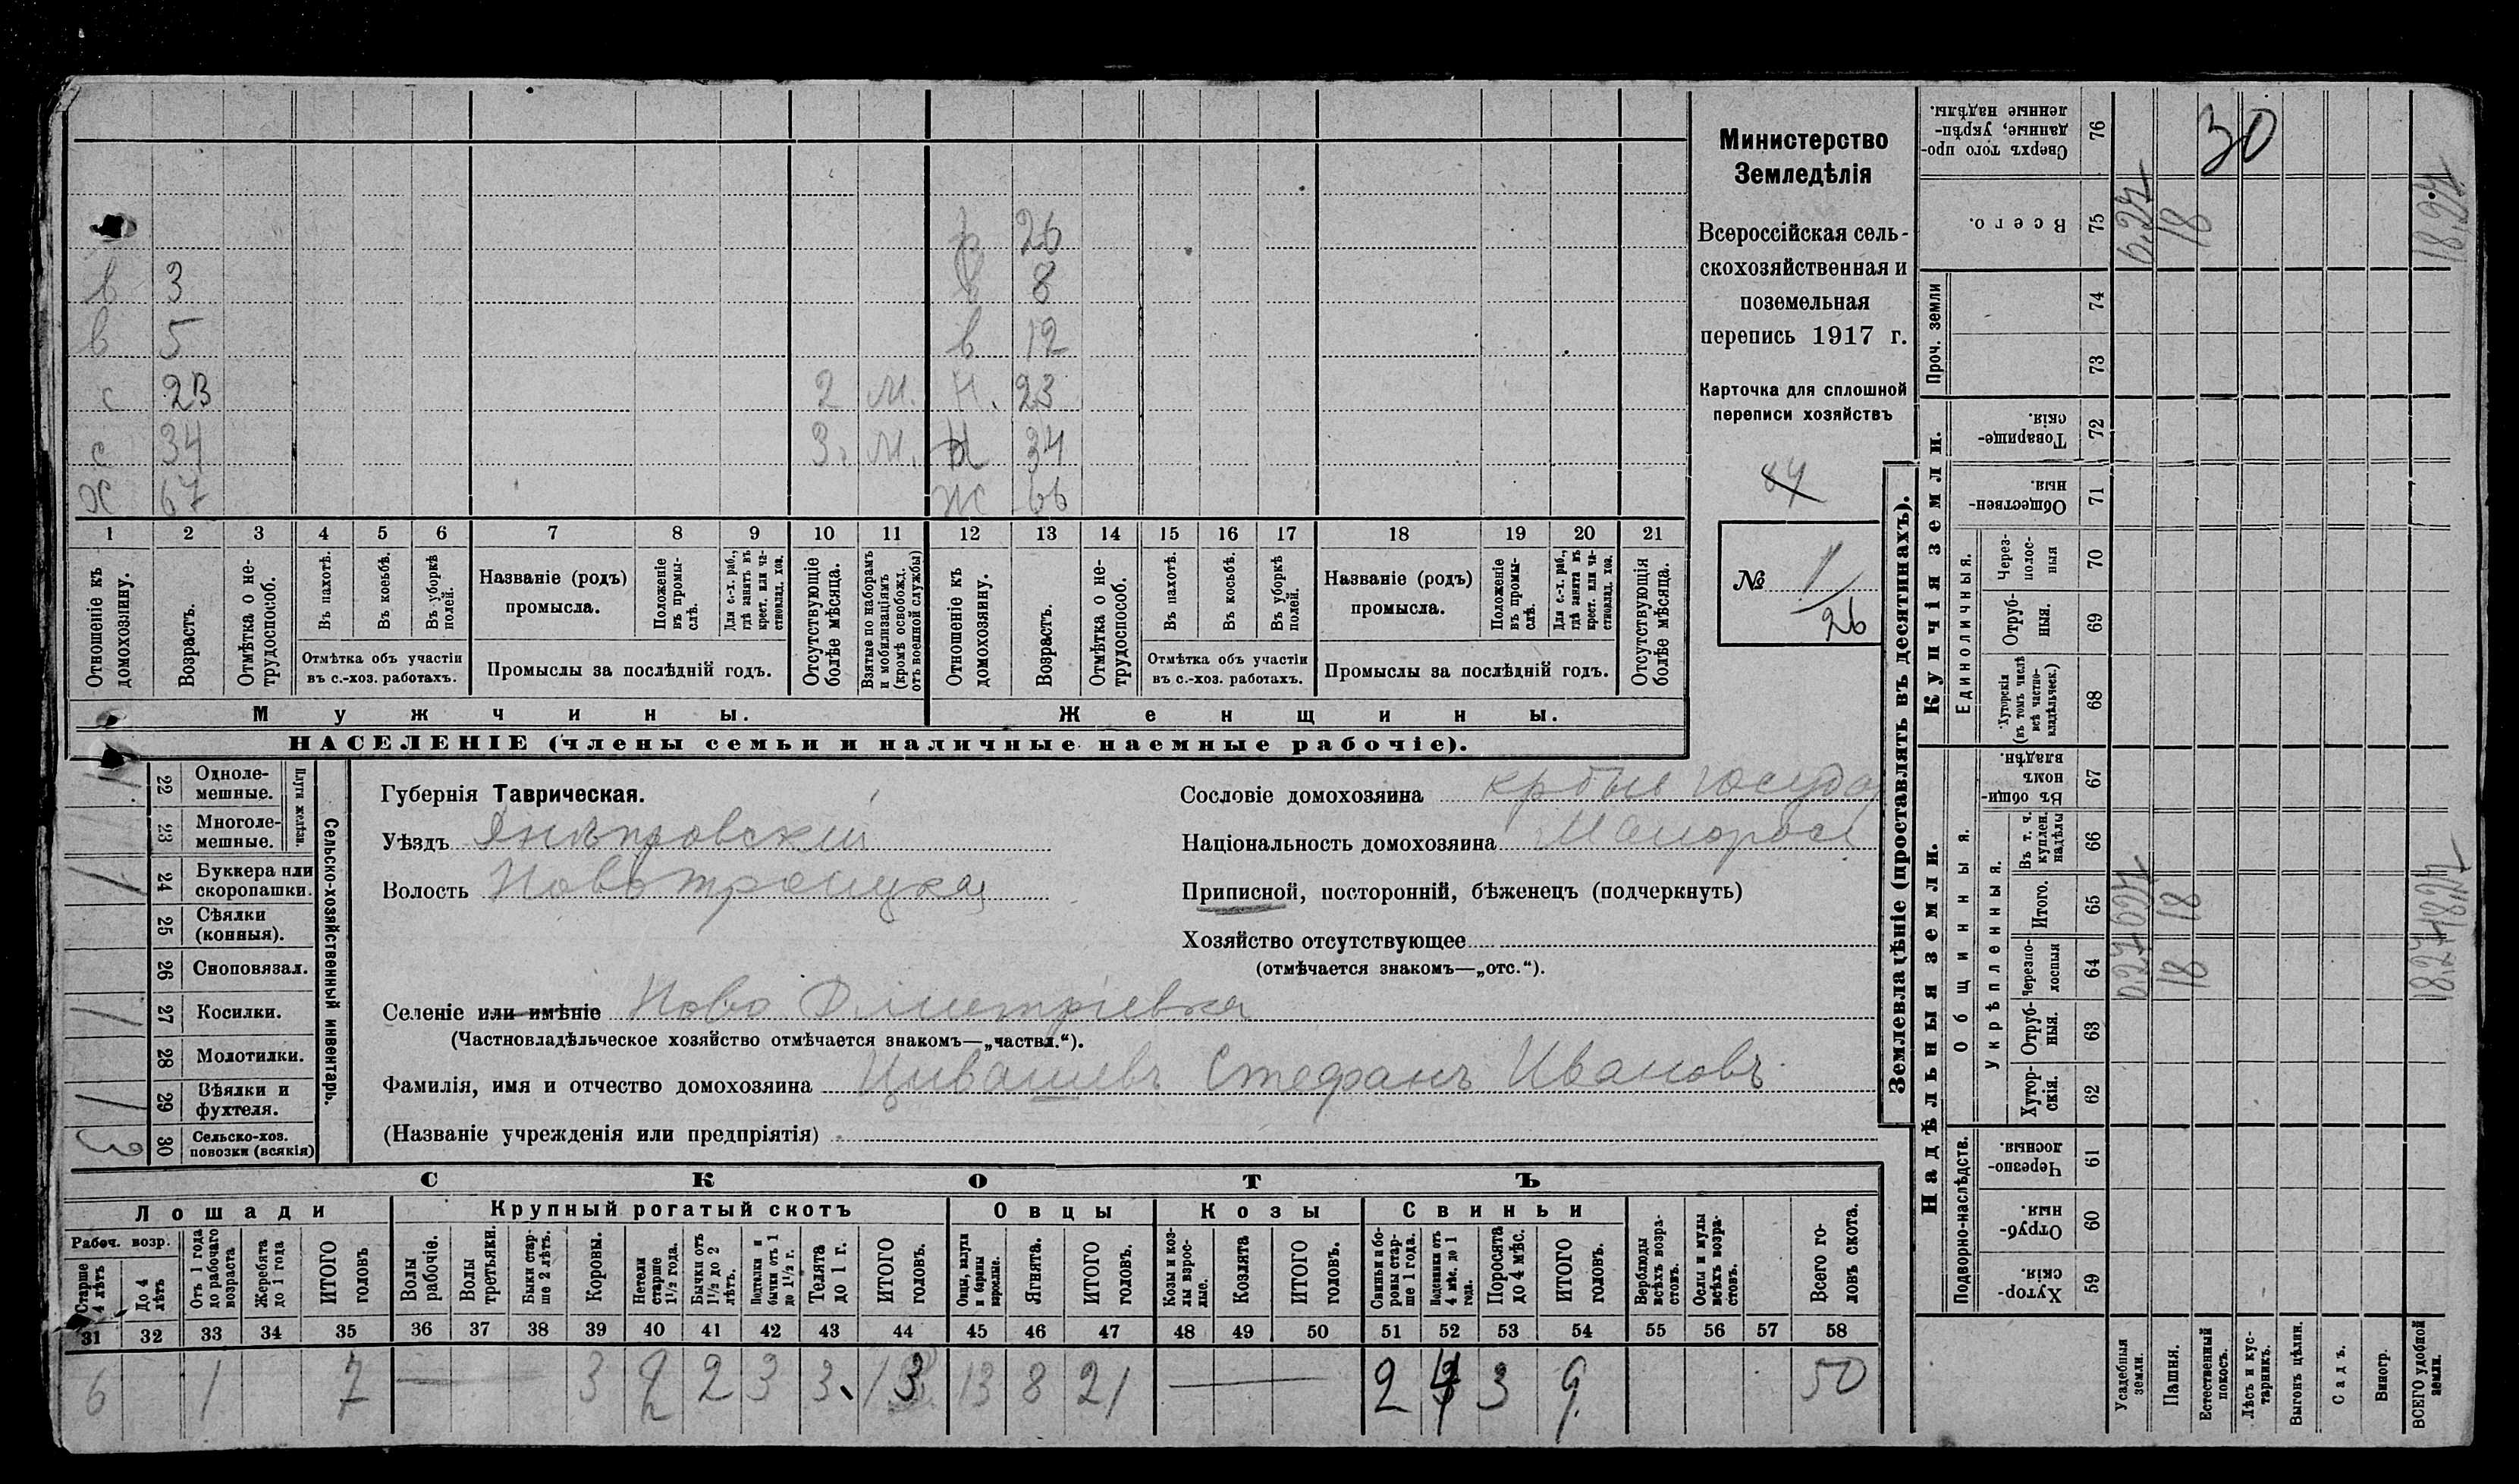 Министерство
Земледѣлія
Всероссійская сель-
скохозяйственная и
поземельная
перепись 1917 г.
Карточка для сплошной
переписи хозяйствъ
№ 1/26
26
в 3 в 8
в 5 в 12
с 23 2 М. Н. 23
с 34 3. М. Н 34
Х 67 Ж 66
1 2 3 4 5 6 7 8 9 10 11 12 13 14 15 16 17 18 19 20 21
Отношеніе къ домохозяину.
Возрастъ.
Отмѣтка о не-трудоспособ.
Въ пахотѣ.
Въ косьбѣ.
Въ уборкѣ полей.
Отмѣтка объ участіи
въ с.-хоз. работахъ.
Названіе (родъ)
промысла.
Положеніе въ промы-слѣ.
Для с.-х. раб., гдѣ занятъ въ крест. или ча-стновлад. хоз.
Промыслы за послѣдній годъ.
Отсутствующіе болѣе мѣсяца.
Взятые по наборамъ и мобилизаціямъ (кромѣ освобожд. отъ военной службы)
Отношеніе къ домохозяину.
Возрастъ.
Отмѣтка о не-трудоспособ.
Въ пахотѣ.
Въ косьбѣ.
Въ уборкѣ полей.
Отмѣтка объ участіи
въ с.-хоз. работахъ.
Названіе (родъ)
промысла.
Положеніе въ промы-слѣ.
Для с.-х. раб., гдѣ занята въ крест. или ча-стновлад. хоз.
Промыслы за послѣдній годъ.
Отсутствующія болѣе мѣсяца.
Мужчины. Женщины.
НАСЕЛЕНІЕ (члены семьи и наличные наемные рабочіе).
Сельско-хозяйственный инвентарь.
Плуги желѣзн.
22 Одноле-мешные.
23 Многоле-мешные.
24 Буккера или скоропашки.
25 Сѣялки (конныя).
26 Сноповязал.
27 Косилки.
28 Молотилки.
29 Вѣялки и фухтеля.
30 Сельско-хоз. повозки (всякія)
Губернія Таврическая.
Уѣздъ Днѣпровскій
Волость Новотроицкая
Сословіе домохозяина
Національность домохозяина Малоросс
Приписной, посторонній, бѣженецъ (подчеркнуть)
Хозяйство отсутствующее
(отмѣчается знакомъ—„отс.“).
Селеніе или имѣніе Ново Диметріевка
(Частновладѣльческое хозяйство отмѣчается знакомъ—„частвл.“).
Фамилія, имя и отчество домохозяина Цивашевъ Стефанъ Ивановъ
(Названіе учрежденія или предпріятія)
СКОТЪ
Лошади Крупный рогатый скотъ Овцы Козы Свиньи
Рабоч. возр.
Старше 4 лѣтъ
До 4 лѣтъ
Отъ 1 года до рабочаго возраста
Жеребята до 1 года
ИТОГО головъ
Волы рабочіе.
Волы третьяки.
Быки стар-ше 2 лѣтъ.
Коровы.
Нетели старше 1½ года.
Бычки отъ 1½ до 2 лѣтъ.
Подтелки и бычки отъ 1 до 1½ г.
Телята до 1 г.
ИТОГО головъ.
Овцы, валухи и бараны взрослые.
Ягнята.
ИТОГО головъ.
Козы и коз-лы взрос-лые.
Козлята
ИТОГО головъ.
Свиньи и бо-ровы стар-ше 1 года.
Подсвинки отъ 4 мѣс. до 1 года.
Поросята до 4 мѣс.
ИТОГО головъ.
Верблюды всѣхъ возра-стовъ.
Ослы и мулы всѣхъ возра-стовъ.
Всего го-ловъ скота.
31 32 33 34 35 36 37 38 39 40 41 42 43 44 45 46 47 48 49 50 51 52 53 54 55 56 57 58
6 1 7 — 3 2 2 3 3 13 13 8 21 — 2 4 3 9 50
Землевладѣніе (проставлять въ десятинахъ).
Надѣльныя земли. Купчія земли. Проч. земли
Подворно-наслѣдств.
Общинныя.
Укрѣпленныя.
Единоличныя.
59 Хутор-скія.
60 Отруб-ныя.
61 Черезпо-лосныя.
62 Хутор-скія.
63 Отруб-ныя.
64 Черезпо-лосныя
65 Итого.
66 Въ т. ч. куплен. надѣлы
67 Въ общин-номъ владѣн.
68 Хуторскія (въ томъ числѣ всѣ частно-владѣльческ.)
69 Отруб-ныя.
70 Через-полос-ныя
71 Обществен-ныя.
72 Товарище-скія.
73
74
75 Всего.
76 Сверхъ того про-данные, укрѣп-ленные надѣлы.
Усадебныя земли. 0,27 0,27 0,27
Пашня. 18 18 18
Естественный покосъ. 30
Лѣсъ и кус-тарникъ.
Выгонъ цѣлин.
Садъ.
Виногр.
ВСЕГО удобной земли. 18,27 18,27 18,27